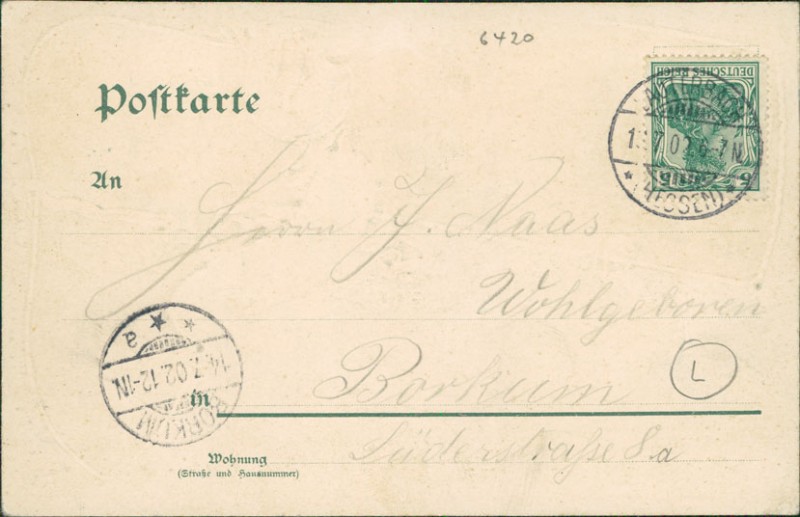 6420
DEUTSCHES REICH
5 5
Postkarte
(HESSEN)
7.02.6-7N.
An
Herrn J. Naas
Wohlgeboren
a
14.7.02.12-1N
BORKUM
L
in Borkum
Lüderstraße 8a
Wohnung
(Straße und Hausnummer)